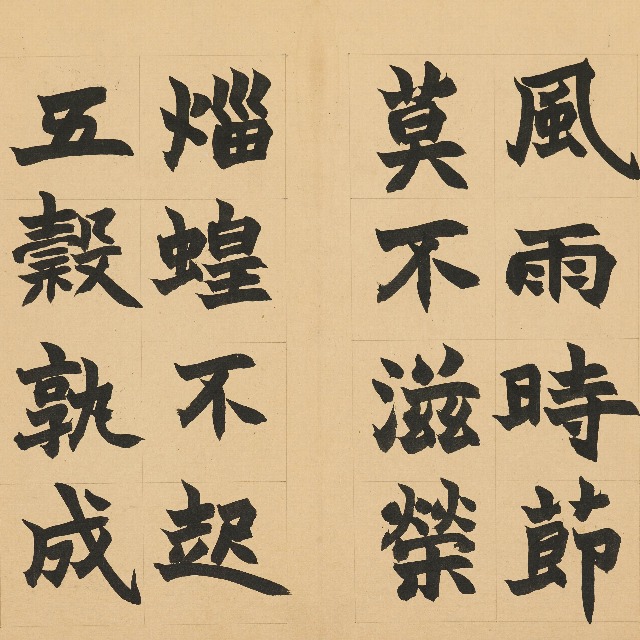 風雨時節
莫不滋榮
蝗不起
五穀孰成